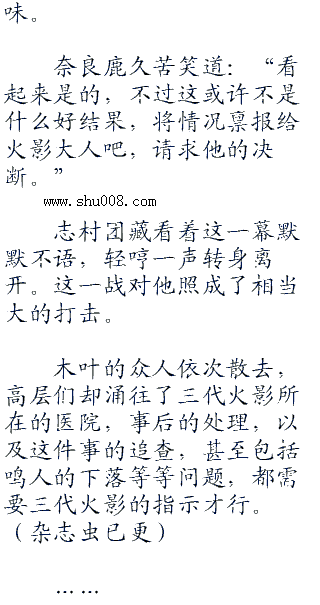 味。
奈良鹿久苦笑道：“看
起来是的，不过这或许不是
什么好结果，将情况禀报给
火影大人吧，请求他的决
断。”
www.shu008.com
志村团藏看着这一幕默
默不语，轻哼一声转身离
开。这一战对他照成了相当
大的打击。
木叶的众人依次散去，
高层们却涌往了三代火影所
在的医院，事后的处理，以
及这件事的追查，甚至包括
鸣人的下落等等问题，都需
要三代火影的指示才行。
（杂志虫已更）
……